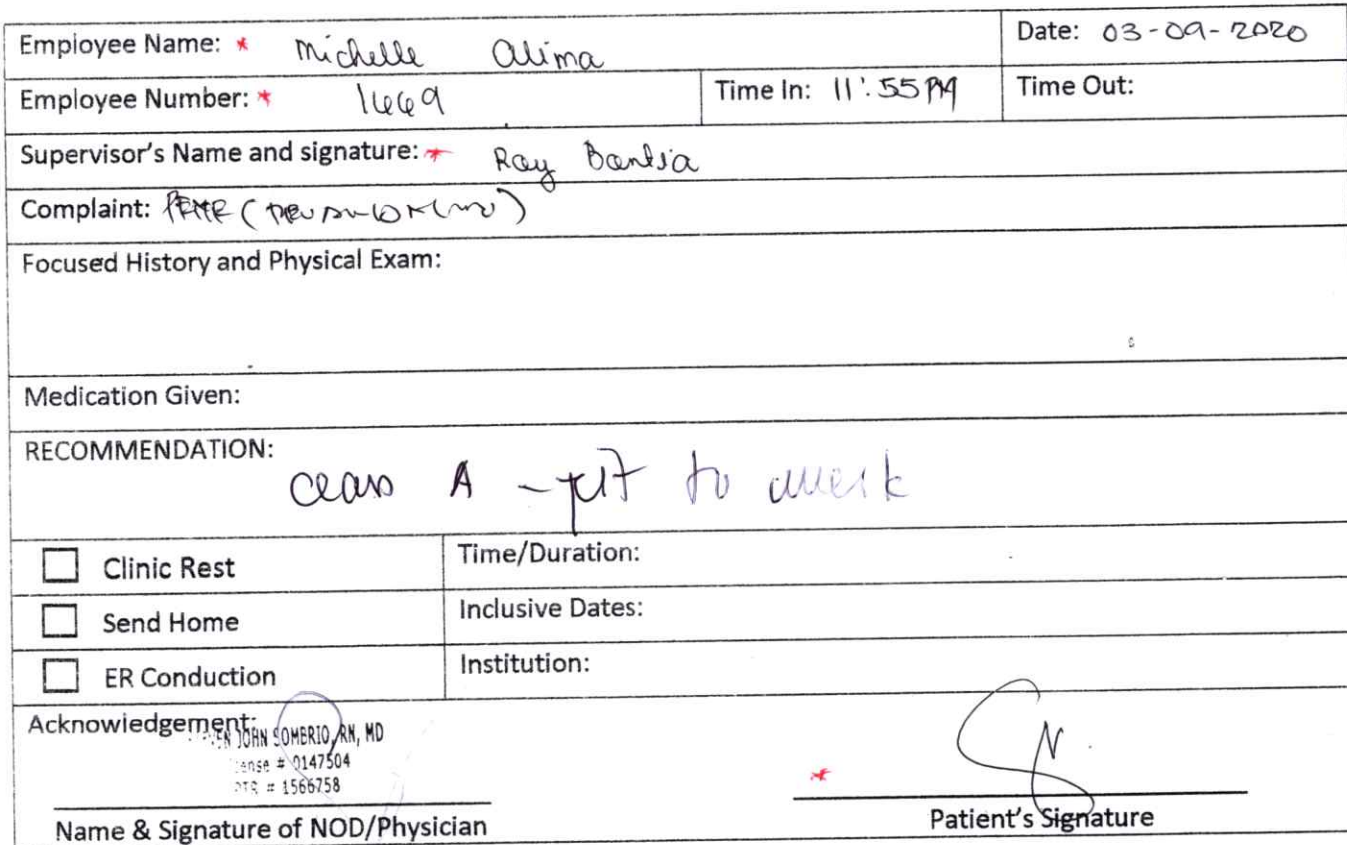 Employee Name: * Michelle Alima
Date: 03-09-2020
Employee Number: * 1669
Time In: 11:55 PM
Time Out:
Supervisor's Name and signature: * Ray
Complaint:
Focused History and Physical Exam:
Medication Given:
RECOMMENDATION:
Class A - fit to work
Clinic Rest
Time/Duration:
Send Home
Inclusive Dates:
ER Conduction
Institution:
Acknowledgement:
JOHN SOMBRIO, RN, MD
# 0147504
# 1566758
*
Name & Signature of NOD/Physician
Patient's Signature